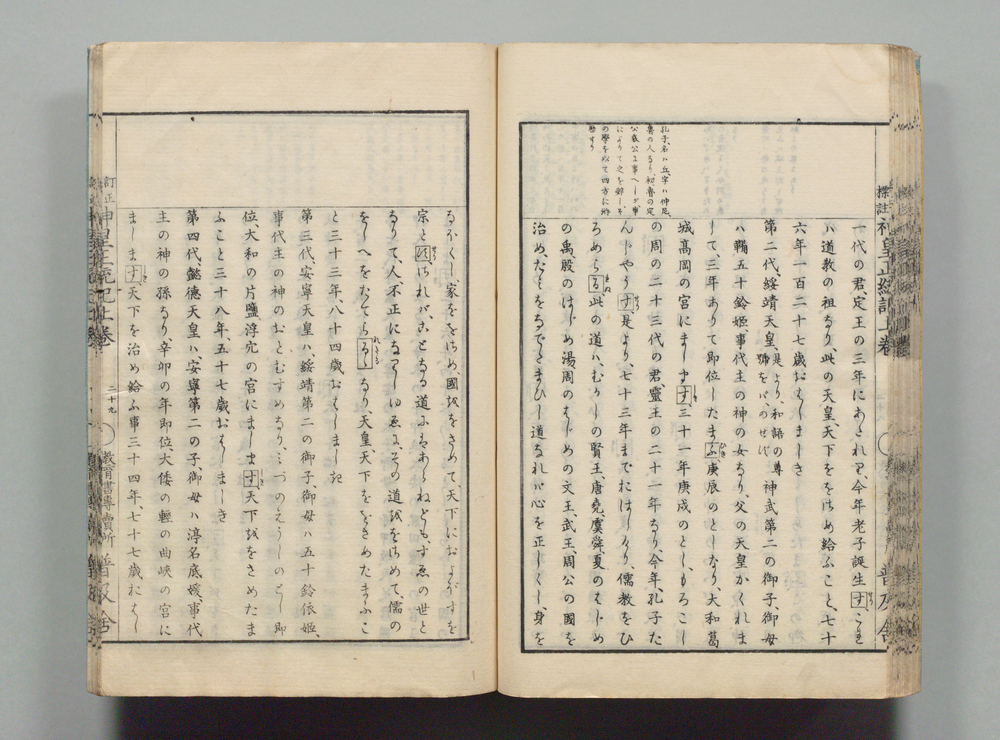 標註神皇正統記上巻
普及舍
孔子、名ハ丘、字ハ仲尼、
魯の人なり、初魯の定
公哀公に事へしが事
によりて之を辞しそ
の學を以て四方に游
歴せり
一代の君定王の三年にあたれり、今年老子誕生す、これ
ハ道教の祖なり、此の天皇、天下ををさめ給ふこと、七十
六年、一百二十七歳おはしましき
第二代、綏靖天皇、是より、和語の尊號をバ、のせず、神武第二の御子、御母
ハ鞴五十鈴姫、事代主の神の女なり、父の天皇かくれま
して、三年ありて即位したまふ、庚辰のとしなり、大和葛
城高岡の宮にまします、三十一年庚戌のとし、もろこし
の周の二十三代の君、靈王の二十一年なり、今年、孔子た
んじやうす、是より、七十三年までおはしけり、儒教をひ
ろめらる、此の道ハ、むかしの賢王、唐堯、虞舜、夏のはじめ
の禹、殷のはじめ湯、周のはじめの文王、武王、周公の國を
治め、たみをなでたまひし道なれバ、心を正しくし、身を
なほくし、家ををさめ、國ををさめて天下におよぼすを
宗とす、されバ、ことなる道にハあらねども、すゑの世と
なりて、人不正になりしゆゑに、その道ををさめて、儒の
をしへをたてらるゝなり、天皇、天下ををさめたまふこ
と三十三年、八十四歳おはしましき
第三代、安寧天皇ハ、綏靖第二の御子、御母ハ五十鈴依姫、
事代主の神のおとむすめなり、みづのえうしのとし即
位、大和の片鹽浮穴の宮にまします、天下ををさめたま
ふこと三十八年、五十七歳おはしましき
第四代、懿德天皇ハ、安寧第二の子、御母ハ渟名底媛、事代
主の神の孫なり、辛卯の年即位、大倭の輕の曲峽の宮に
まします、天下を治め給ふ事三十四年、七十七歳おはし
訂正標註神皇正統記上巻
二十九
教育書専賣所 普及舍